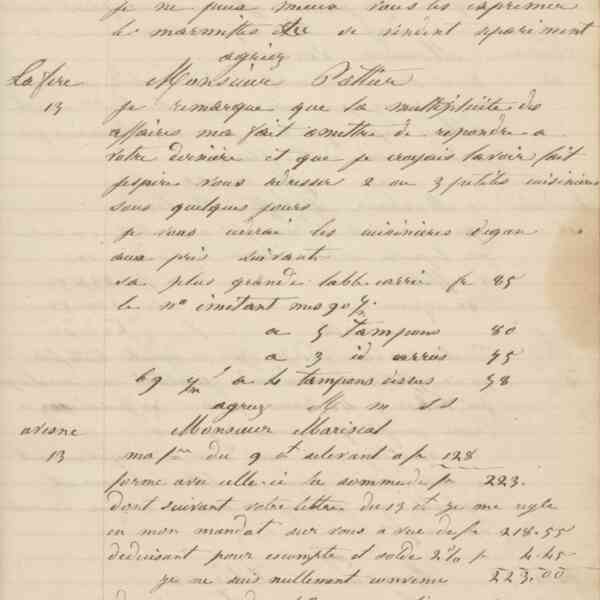 je ne puis mieux vous les exprimer
les marmites se vendent sépariment
agriez
Lafere Monsieur Pottier
13 je remarque que la multiplicite des
affaires ma fait omettre de repondre a
votre derniere et que je croyais lavoir fait
jespire vous adresser 2 ou 3 petites cuisinieres
sous quelques jours
je vous les cuisinieres
aux prix suivants
la plus grande table carrie fr 85
le n° imitant nos 90
a 5 tampons 80
a 3 id carrés 75
a de tampons 58
agriez M m s s
avesne Monsieur Mariscal
13 ma du 9 ct selevant a fr 128
forme avec celle ci la somme de fr 223.
dont suivant votre lettre du 13 ct je me regle
en mon mandat sur vous a vue de fr 218.55
deduisant pour escompte et solde 2% f 4.45
je ne suis nullement convenu 223.00